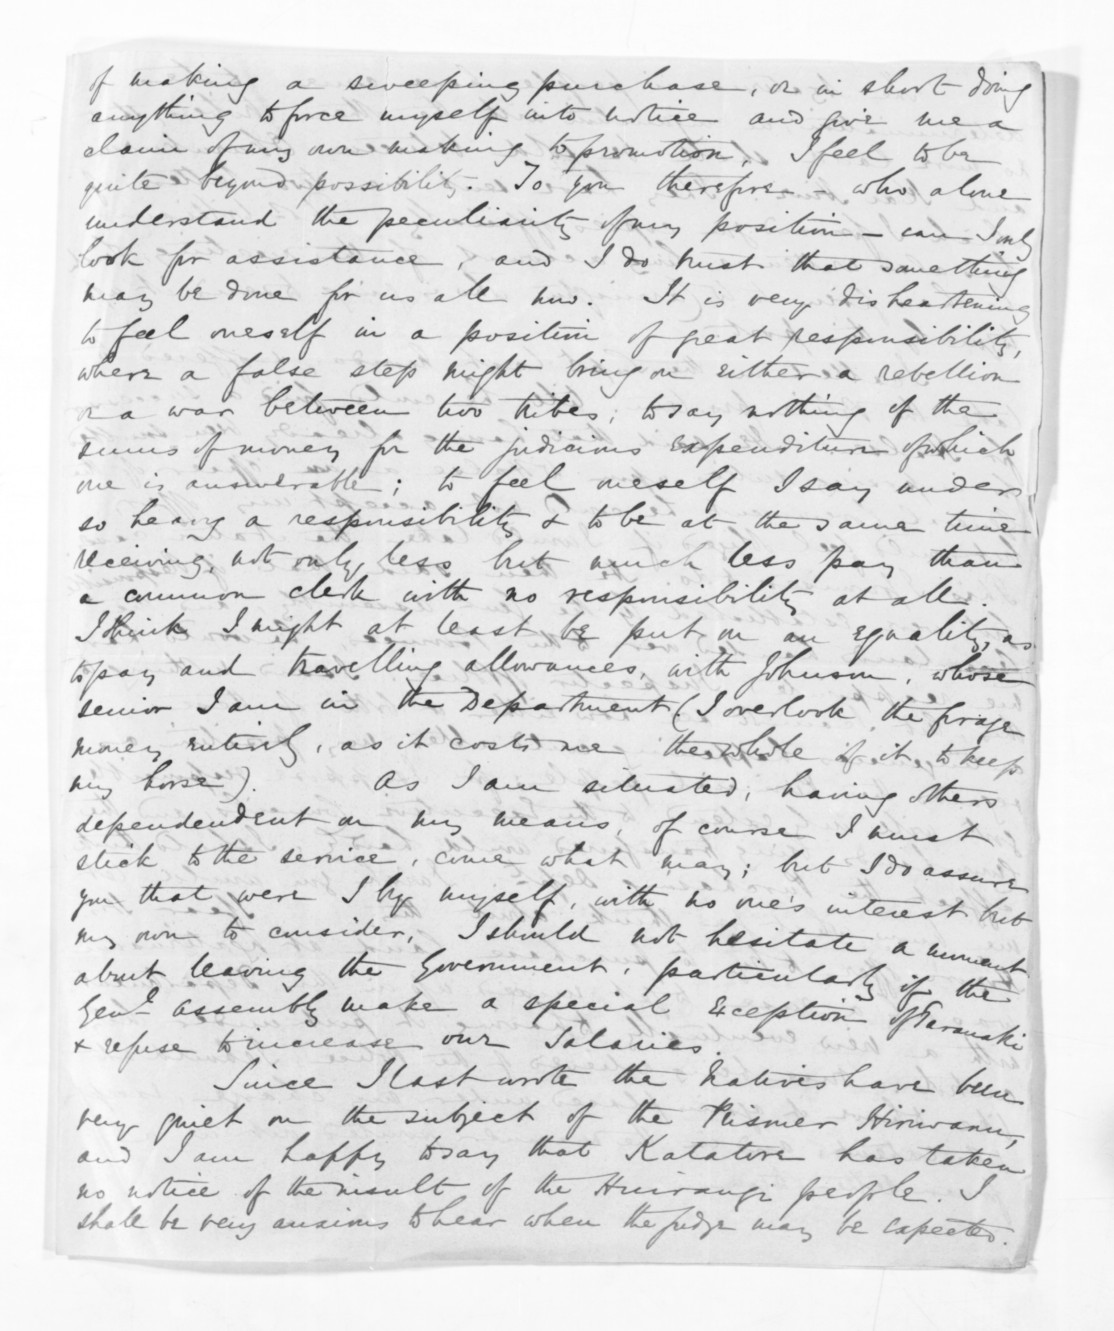 of making a sweeping purchase, or in short doing
anything to force myself into notice and give me a
claim of my own making to promotion, I feel to be
quite beyond possibility. To you therefore - who alone
understand the peculiarity of my position - can I only
look for assistance, and I do trust that something
may be done for us all now. It is very disheartening
to feel oneself in a position of great responsibility,
where a false step might bring on either a rebellion
or a war between two tribes; to say nothing of the
sums of money for the judicious expenditure of which
one is answerable; to feel oneself I say under
so heavy a responsibility & to be at the same time
receiving, not only less but much less pay than
a common clerk with no responsibility at all.
I think I might at least be put on an equality, as
to pay and travelling allowances, with Johnson, whose
senior I am in the Department (I overlook the forage
money entirely, as it costs me the whole of it to keep
my horse). As I am situated, having others
dependendent on my means, of course I must
stick to the service, come what may; but I do assure
you that were I by myself, with no one's interest but
my own to consider, I should not hesitate a moment
about leaving the Government, particularly if the
Genl. Assembly make a special exception of Taranaki
& refuse to increase our Salaries.
Since I last wrote the Natives have been
very quiet on the subject of the Prisoner Hiriwanu,
and I am happy to say that Katatore has taken
no notice of the insult of the Huirangi people. I
shall be very anxious to hear when the judge may be expected.